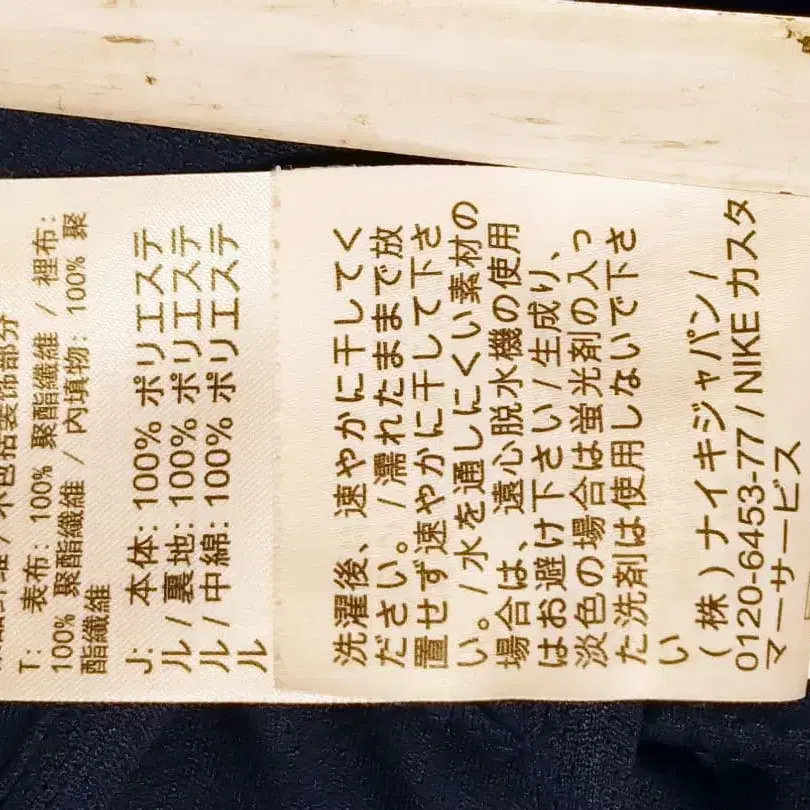 T: 表布: 100% 聚酯纖維 / 裡布:
100% 聚酯纖維 / 內填物: 100% 聚
酯纖維
J: 本体: 100% ポリエステ
ル / 裏地: 100% ポリエステ
ル / 中綿: 100% ポリエステ
ル
洗濯後、速やかに干してく
ださい。 /濡れたままで放
置せず速やかに干して下さ
い。/ 水を通しにくい素材の
場合は、遠心脱水機の使用
はお避け下さい / 生成り、
淡色の場合は蛍光剤の入っ
た洗剤は使用しないで下さ
い
(株) ナイキジャパン /
0120-6453-77 / NIKE カスタ
マーサービス